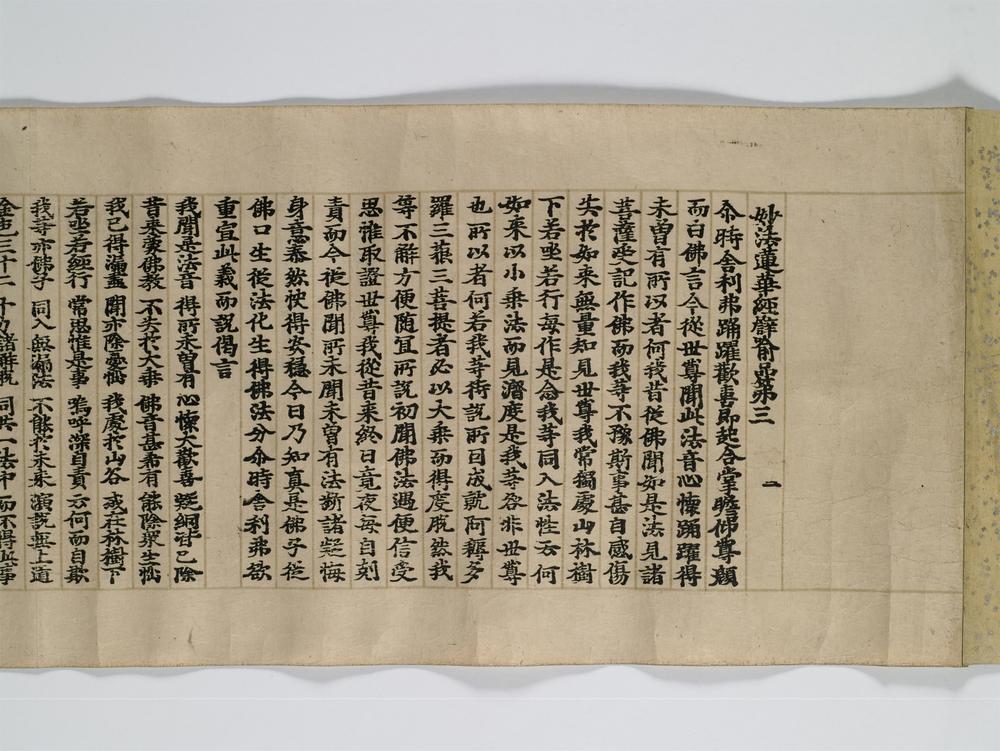 妙法蓮華經譬喻品第三 二
尒時舍利弗踊躍歡喜即起合掌瞻仰尊顏
而白佛言今從世尊聞此法音心懷踊躍得
未曾有所以者何我昔從佛聞如是法見諸
菩薩受記作佛而我等不豫斯事甚自感傷
失於如來無量知見世尊我常獨處山林樹
下若坐若行每作是念我等同入法性云何
如來以小乘法而見濟度是我等咎非世尊
也所以者何若我等待說所因成就阿耨多
羅三藐三菩提者必以大乘而得度脫然我
等不解方便隨宜所說初聞佛法遇便信受
思惟取證世尊我從昔來終日竟夜每自剋
責而今從佛聞所未聞未曾有法斷諸疑悔
身意泰然快得安穩今日乃知真是佛子從
佛口生從法化生得佛法分尒時舍利弗欲
重宣此義而說偈言
我聞是法音 得所未曾有 心懷大歡喜 疑網皆已除
昔來蒙佛教 不失於大乘 佛音甚希有 能除眾生惱
我已得漏盡 聞亦除憂惱 我處於山谷 或在林樹下
若坐若經行 常思惟是事 嗚呼深自責 云何而自欺
我等亦佛子 同入無漏法 不能於未來 演說無上道
金色三十二 十力諸解脫 同共一法中 而不得此事